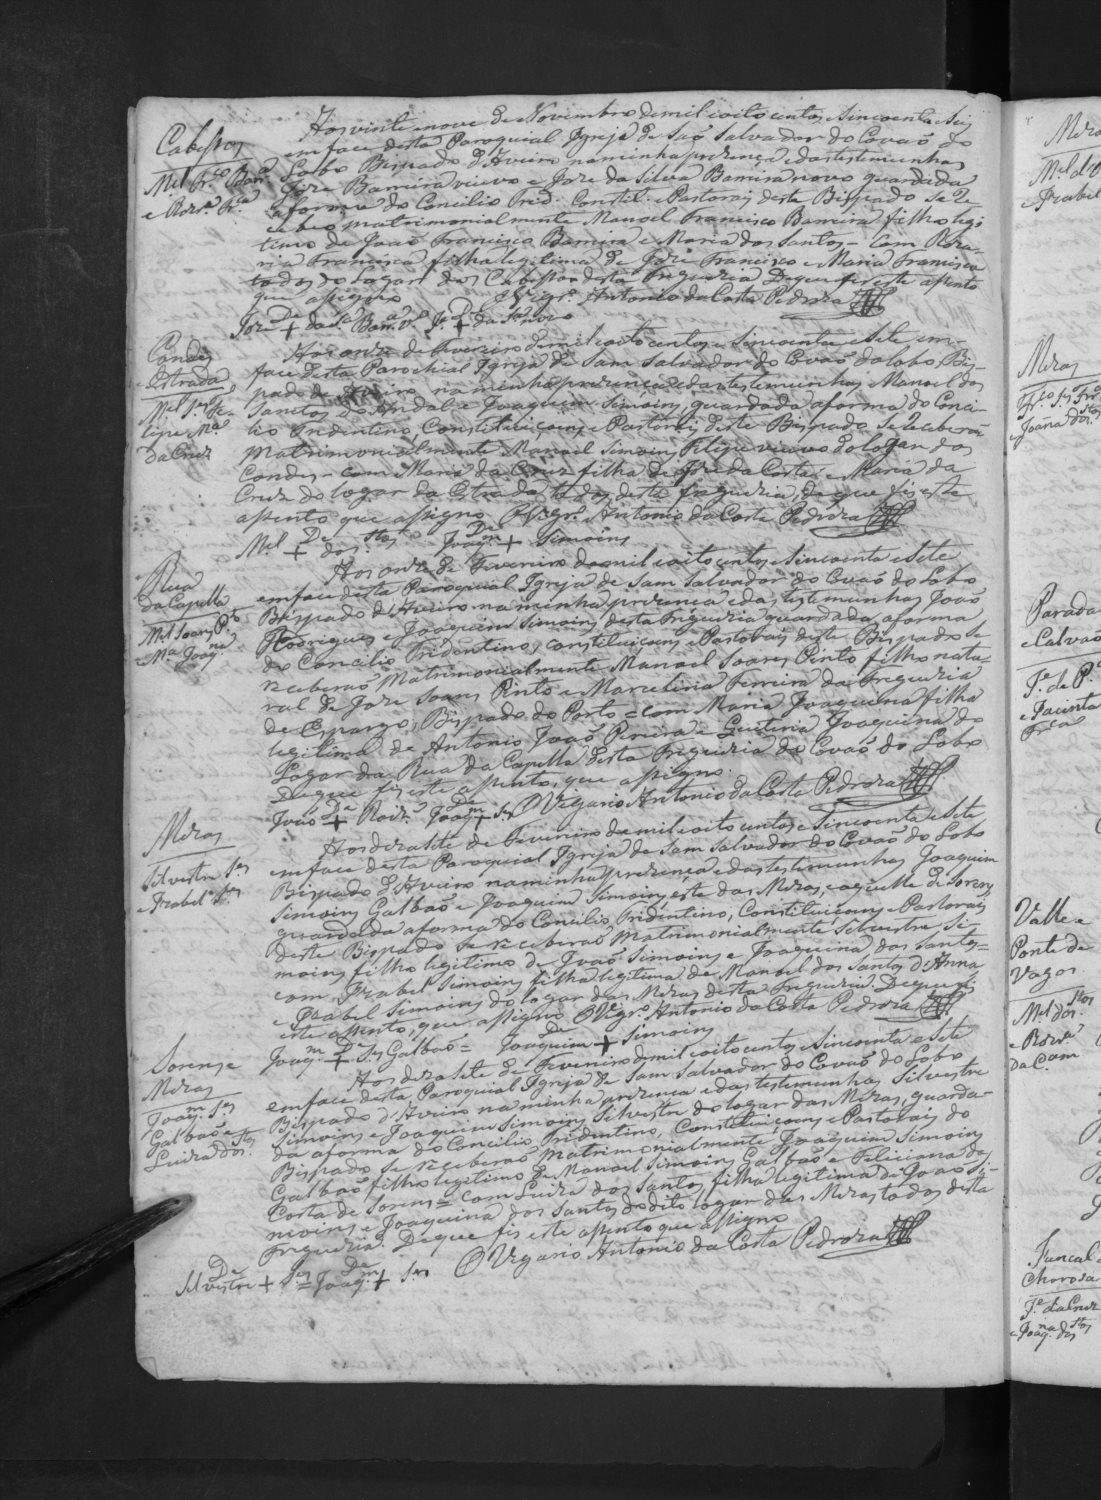 Cabeços
Mel Frco Bamra
e Rozra Frca
Aos vinte e nove de Novembro de mil oito centos e sincoenta e seis
em face desta Paroquial Igreja de São Salvador do Covaõ do
Lobo Bispado d'Aveiro na minha prezença e das testemunhas
Joze Bamira viuvo e Joze da Silva Bamira novo guardada
a forma do Concilio Trid. Constit. e Pastoraes deste Bispado Se re
cebeo matrimonialmente Manoel Francisco Bamira filho legi
timo de Joaõ Francisco Bamira e Maria dos Santos = com Roza-
ria Francisca filha legitima de Joze Francisco e Maria Francisca
todos do Lugar dos Cabeços desta freguezia De que fis este assento
que assigno O Vigro Antonio da Costa Pedroza
Joze + da Sa Bamra vo J. + da Sa novo
Condes
e Estrada
Mel Ses Fe-
lipe Ma
da Cruz
Aos onze de Fevereiro de mil oito centos e sincoenta e sete em-
face desta Parochial Igreja de Sam Salvador do Covaõ do Lobo Bis-
pado de Aveiro na minha prezença e das testemunhas Manoel dos
Sanctos do Andal e Joaquim Simoins, guardada a forma do Conci-
lio Tridentino, Constituiçoens e Pastoraes deste Bispado Se receberaõ
matrimonialmente Manoel Simoins Felipe viuvo do logar dos
Condes = com Maria da Cruz filha de Joze da Costa e Maria da
Cruz do logar da Estrada todos desta freguezia, de que fis este
assento que assigno O Vigro Antonio da Costa Pedroza
Mel + dos Stos Joaqm + Simoins
Rua
da Capella
Mel Soares Pto
e Ma Joaqna
Aos onze de Fevereiro de mil oito centos e sincoenta e sete
em face desta Paroquial Igreja de Sam Salvador do Covaõ do Lobo
Bispado d'Aveiro na minha prezença e das testemunhas Joaõ
Rodrigues e Joaquim Simoins desta freguezia guardada a forma
do Concilio Tridentino, constituiçoens e Pastoraes deste Bispado Se
receberaõ Matrimonialmente Manoel Soares Pinto filho natu-
ral de Joze Soares Pinto e Marcelina Ferreira da freguezia
de Esmoriz, Bispado do Porto = com Maria Joaquina filha
legitima de Antonio Joaõ Pereira e Guiteria Joaquina do
Lugar da Rua da Capella desta freguezia do Covaõ do Lobo
De que fis este assento, que assigno.
O Vigario Antonio da Costa Pedroza
Joaõ + Roiz. Joaqm + Ses
Mezas
Silvestre Ses
e Izabel Ses
Aos dezasete de Fevereiro de mil oito centos e Sincoenta e Sete
em face desta Paroquial Igreja de Sam Salvador do Covaõ do Lobo
Bispado d'Aveiro na minha prezença e das testemunhas Joaquim
Simoins Galbaõ e Joaquim Simoins, este das Mezas, e aquelle de Sorens
guardada a forma do Concilio Tridentino, Constituiçoens e Pastoraes
deste Bispado Se receberaõ Matrimonialmente Silvestre Si-
moins filho legitimo de Joaõ Simoins e Joaquina dos Santos =
com Izabel Simoins filha legitima de Manoel dos Santos d'Anna
e Izabel Simoins do logar das Mezas desta freguezia De que fis
este assento, que assigno O Vigro Antonio da Costa Pedroza
Joaqm + Ses Galbaõ = Joaquim + Simoins
Sorens e
Mezas
Joaqm Ses
Galbaõ e
Luiza dos Stos
Aos dezasete de Fevereiro de mil oito centos e sincoenta e Sete
em face desta Paroquial Igreja de Sam Salvador do Covaõ do Lobo
Bispado d'Aveiro na minha prezença e das testemunhas Silvestre
Simoins e Joaquim Simoins Silvestre do logar das Mezas, guarda-
da a forma do Concilio Tridentino, Constituiçoens e Pastoraes do
Bispado se receberaõ Matrimonialmente Joaquim Simoins
Galbaõ filho legitimo de Manoel Simoins Galbaõ e Feliciana da
Costa de Sorens = com Luiza dos Santos filha legitima de Joaõ Si-
moins e Joaquina dos Santos do dito logar das Mezas todos desta
freguezia. De que fis este assento que assigno
O Vigario Antonio da Costa Pedroza
Silvestre + Ses Joaqm + Ses
Mezas
Parada
e Calvaõ
Valle e
Ponte de
Vagos
Mel dos Stos
e Roza
da C.
Juncal e
Chorosa
Je da Cruz
e Joaqna dos Stos